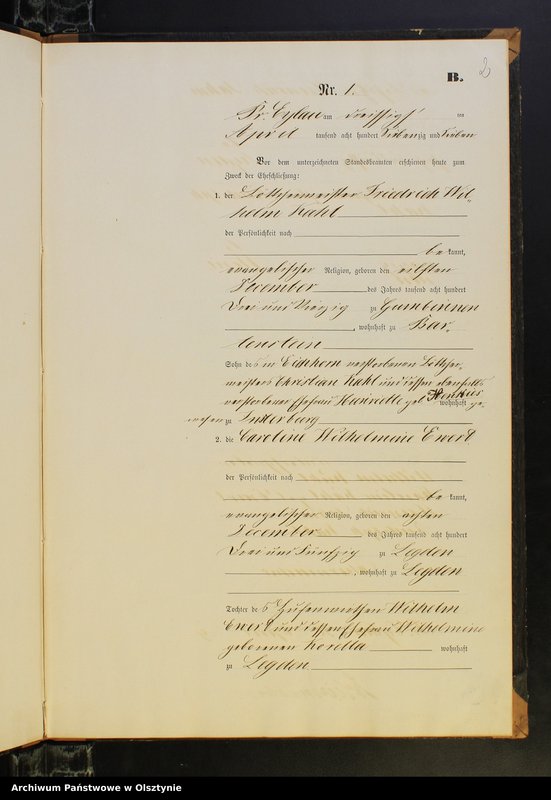 B.
2
Nr. 1.
Pr. Eylau am dreissigst ten
April tausend acht hundert siebenzig und sieben
Vor dem unterzeichneten Standesbeamten erschienen heute zum
Zweck der Eheschließung:
1. der Böttchermeister Friedrich Wil-
helm Kahl
der Persönlichkeit nach
be kannt,
evangelischer Religion, geboren den eilften
December des Jahres tausend acht hundert
drei und vierzig zu Gumbinnen
, wohnhaft zu Bar-
tenstein
Sohn des in verstorbenen Böttcher-
meisters Christian Kahl und dessen ebenfalls
verstorbener Ehefrau Henriette geb. wohnhaft ge-
wesen zu Insterburg
2. die Caroline Wilhelmine Ewert
der Persönlichkeit nach
be kannt,
evangelischer Religion, geboren den achten
December des Jahres tausend acht hundert
drei und fünfzig zu Legden
, wohnhaft zu Legden
Tochter des Wilhelm
Ewert und dessen Ehefrau Wilhelmine
geborenen Korella wohnhaft
zu Legden
Archiwum Państwowe w Olsztynie